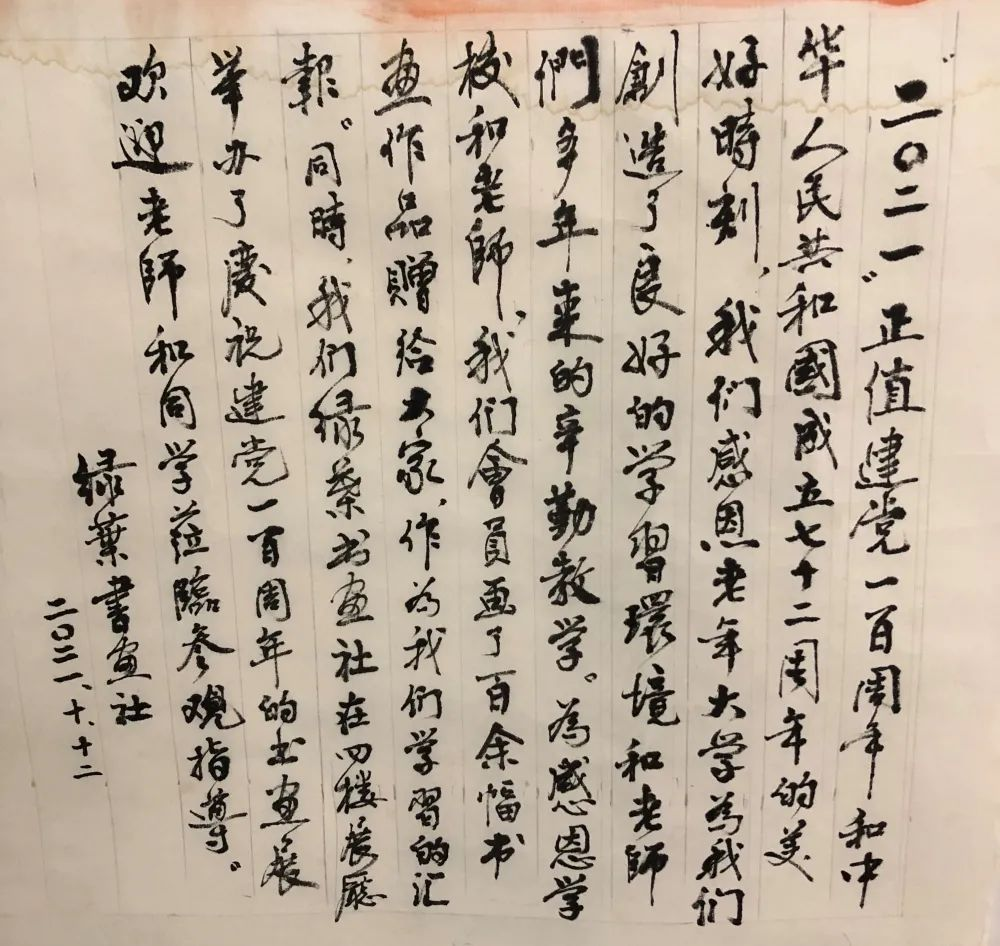 二〇二一"正值建党一百周年和中
华人民共和國成立七十二周年的美
好時刻，我们感恩老年大学為我们
創造了良好的学習環境和老師
們多年来的辛勤教学。為感恩学
校和老師，我们會員画了百余幅书
画作品贈给大家，作為我们学習的汇
報。同時，我们绿葉书画社在四楼展廳
举办了慶祝建党一百周年的书画展
欢迎老師和同学蒞臨参观指導。
绿葉書画社
二〇二一、十、十二